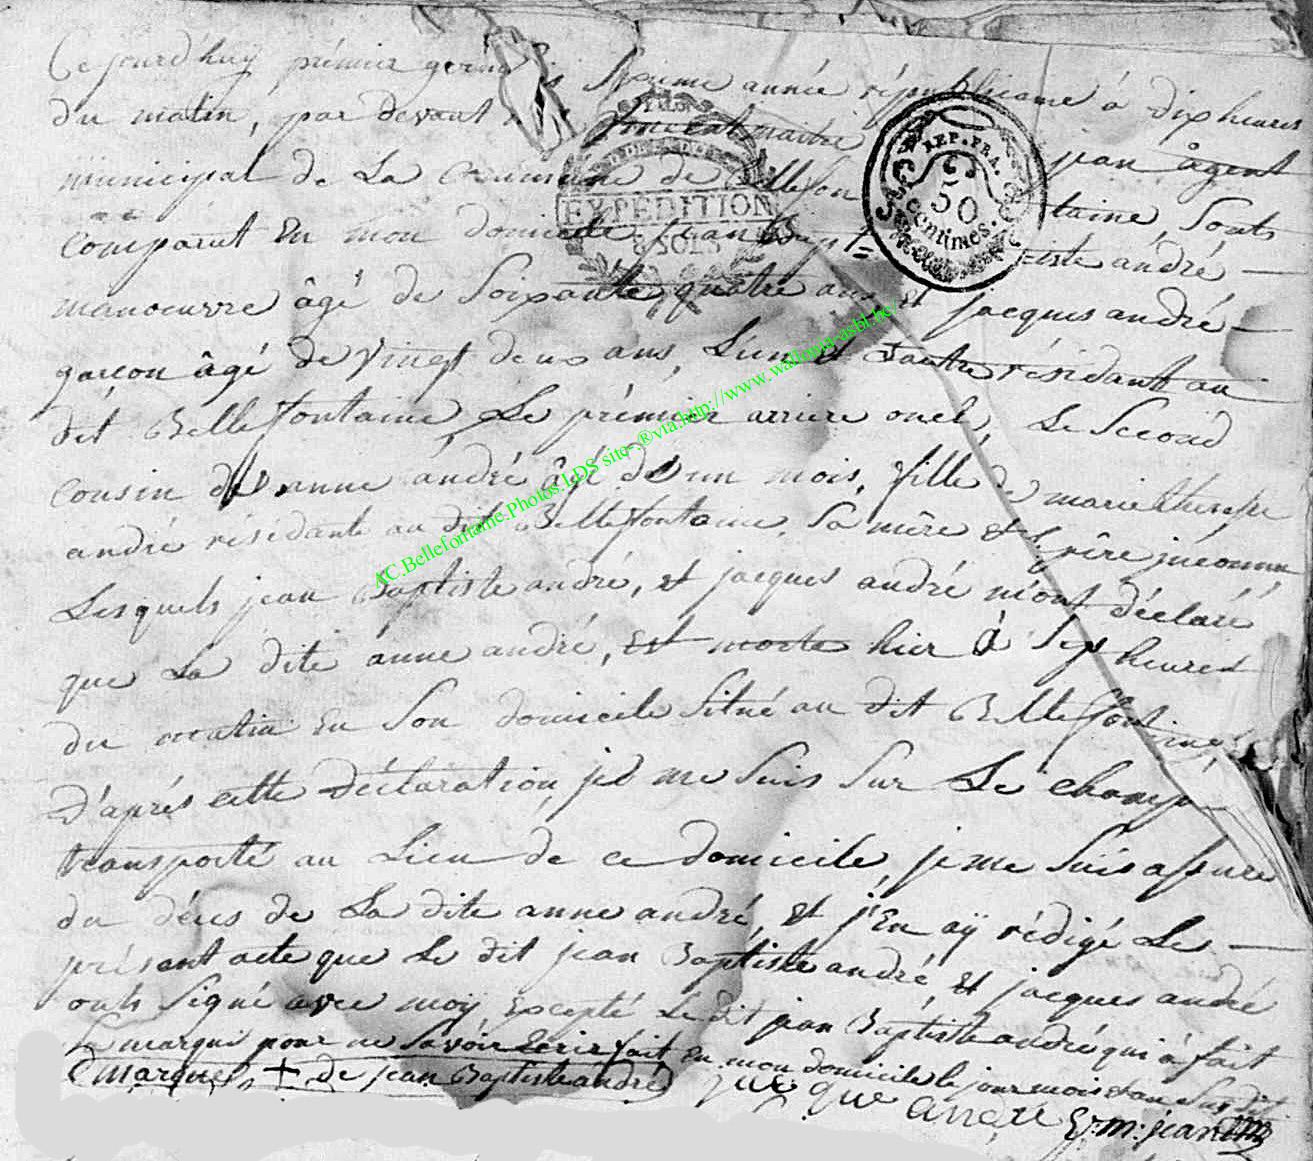 Cejourd'huÿ prémier germ s séptieme année républicaine à dix heures
du matin, par devant vincent maitre jean âgent
municipal de La commune de Bellefon taine, Sonts
comparut En mon domicile jean Bapt= =iste andré —
manoeuvre âgé de Soixante quatre ans, et jacques andré —
garcon âgé de vingt deux ans, L'un et L'autre résidant au
dit Bellefontaine, Le prémier arriere oncl, Le Second
cousin de anne andré âgé de un mois, fille de marie therese
andré résidante au dit Bellefontaine, Sa mêre et père inconnu
Lesquels jean Baptiste andré, et jacques andré m'ont déclaré
que La dite anne andré, est morte hier à Sept heures
du matin En Son domicile Situé au dit Bellefontaine,
D'aprés cette déclaration, je me Suis Sur Le champ
transporté au Lieu de ce domicile, je me Suis assuré
du déces de La dite anne andré, et j'En aÿ rédigé Le —
présent acte que Le dit jean Baptiste andré et jacques andré
onts Signé avec moÿ Excepté Le dit jean Baptiste andré qui à fait
Sa marque pour ne Savoir Ecrir fait En mon domicile le jour mois et an Susdit
marque + de jean Baptiste andré
jacque andre
v: m: jean
REP. FRA.
50
centimes.
EXPÉDITION
8 SOLS
AC.Bellefontaine.Photos.LDS site-.®via.http://www.wallonia-asbl.be/